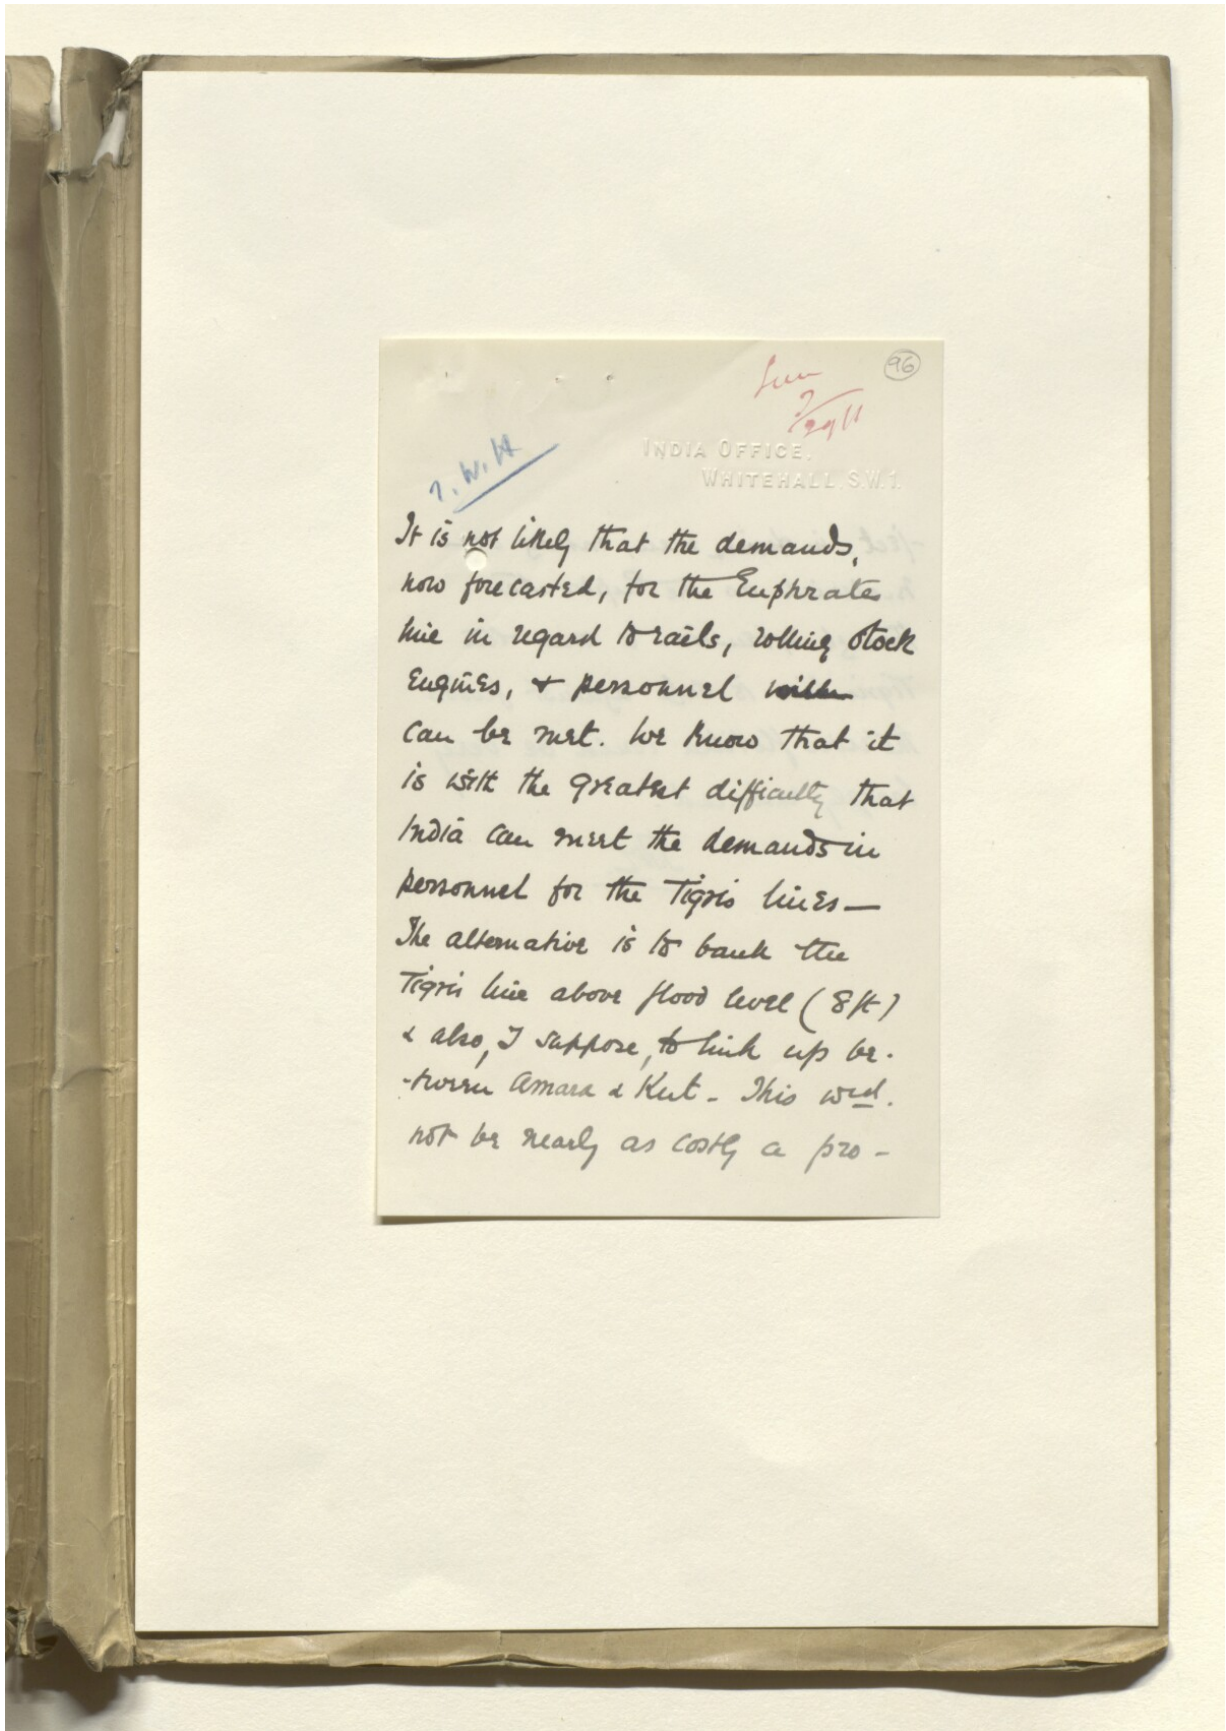 96
INDIA OFFICE,
WHITEHALL. S.W.1.
It is not likely that the demands,
now forecasted, for the Euphrates
line in regard to rails, rolling stock
engines, & personnel will
can be met. We know that it
is with the greatest difficulty that
India can meet the demands in
personnel for the Tigris lines —
The alternative is to bank the
Tigris line above flood level (8 ft)
& also, I suppose, to link up be-
-tween Amara & Kut - This wd.
not be nearly as costly a pro-